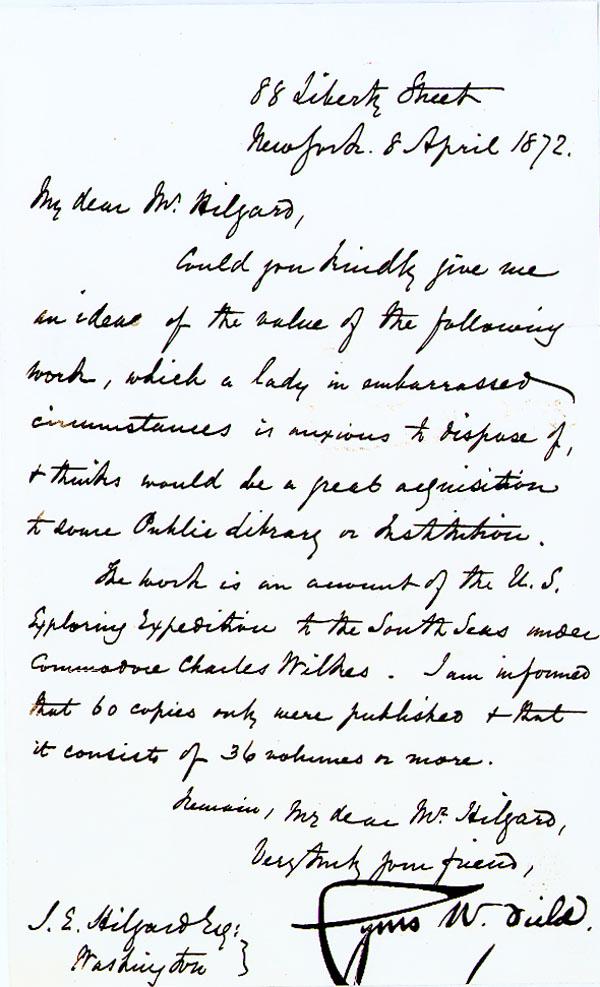 88 Liberty Street
New York. 8 April 1872.
My dear Mr. Hilgard,
Could you kindly give me
an idea of the value of the following
work, which a lady in embarrassed
circumstances is anxious to dispose of,
& thinks would be a great acquisition
to some Public Library or Institution.
The work is an account of the U. S.
Exploring Expedition to the South Seas under
Commodore Charles Wilkes. I am informed
that 60 copies only were published & that
it consists of 36 volumes or more.
Remain, My dear Mr. Hilgard,
Very truly your friend,
Cyrus W. Field.
J. E. Hilgard Esq:
Washington }